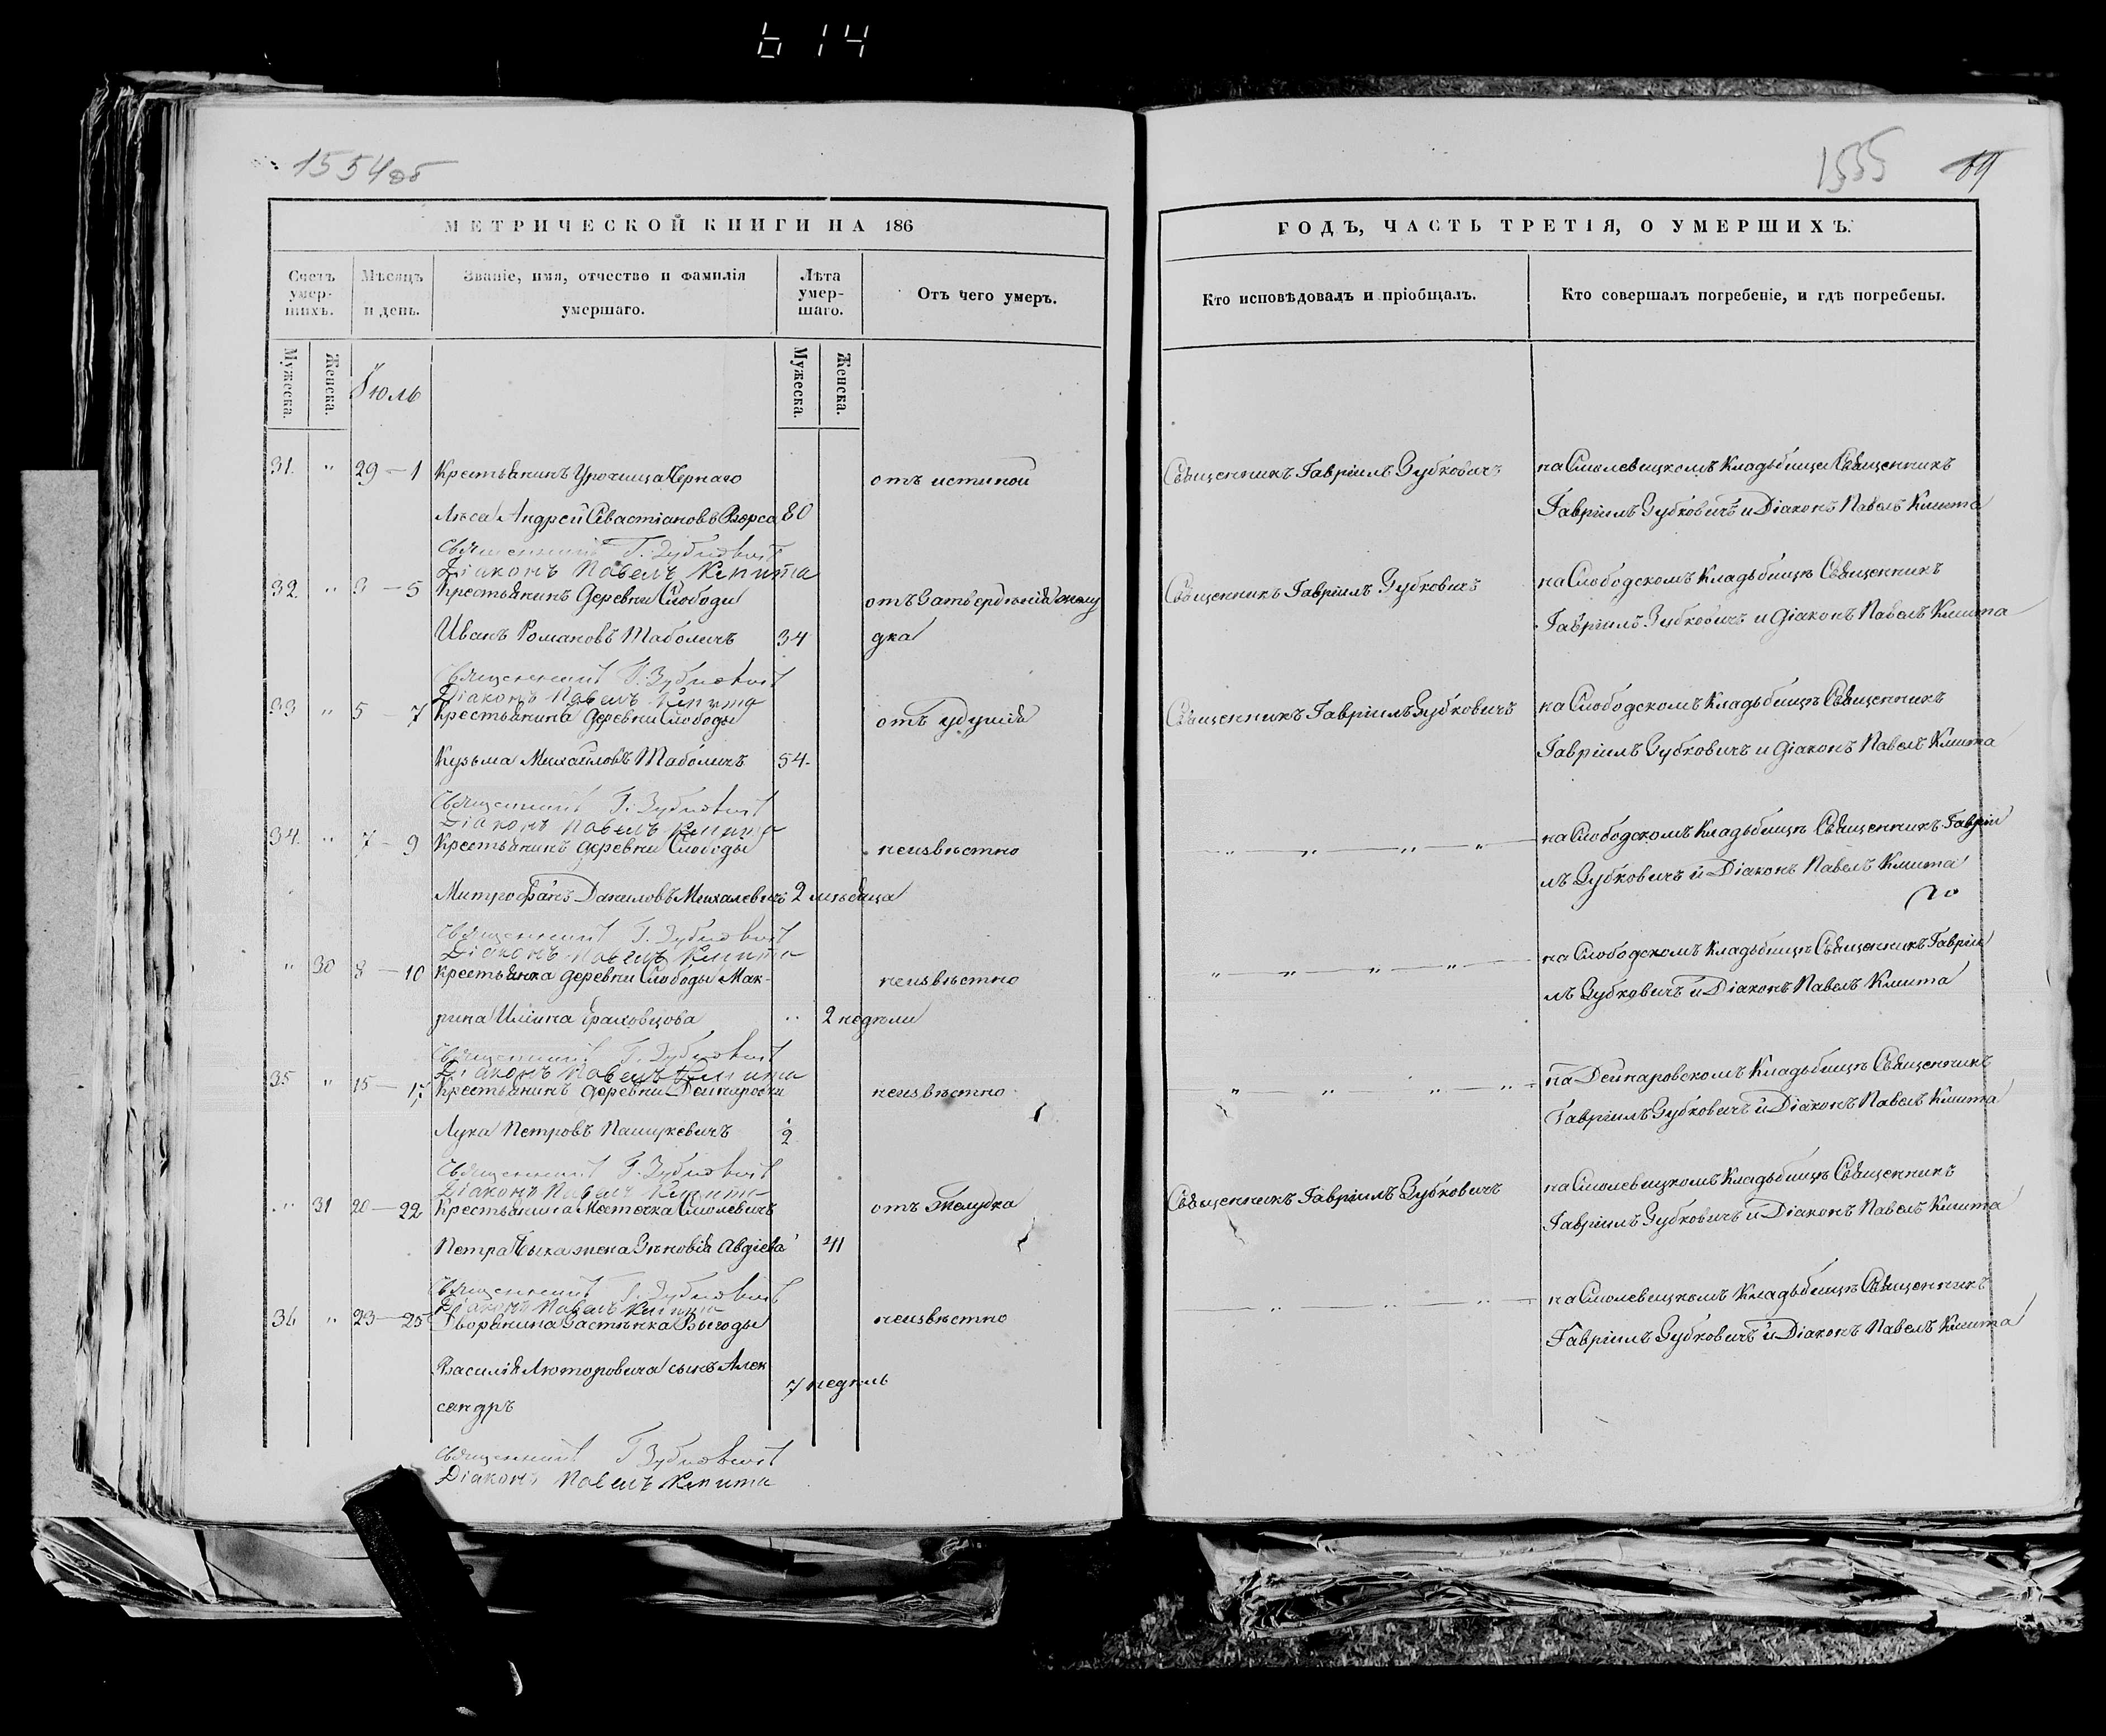 614
1554об
1555
МЕТРИЧЕСКОЙ КНИГИ НА 186
Счетъ умер-шихъ.
Мѣсяцъ и день.
Званіе, имя, отчество и фамилія умершаго.
Лѣта умер-шаго.
Отъ чего умеръ.
Мужеска.
Женска.
Іюль
Мужеска.
Женска.
31. " 29 — 1 Крестьянинъ Урочища Чернаго отъ истиной
Лѣса Андрей Севастіановъ Ворса 80
Священникъ Г. Зубковичъ
Діаконъ Павелъ Кмита
32 " 3 — 5 Крестьянинъ деревни Слободы отъ Затвердѣнія желу
Иванъ Романовъ Таболичъ 34 дка
Священникъ Г. Зубковичъ
Діаконъ Павелъ Кмита
33 " 5 — 7 Крестьянинъ деревни Слободы отъ удушія
Кузьма Михайловъ Таболичъ 54.
Священникъ Г. Зубковичъ
Діаконъ Павелъ Кмита
34. " 7 — 9 Крестьянинъ деревни Слободы неизвѣстно
Митрофанъ Даниловъ Михалевичъ 2 мѣсяца
Священникъ Г. Зубковичъ
Діаконъ Павелъ Кмита
" 30 8 — 10 Крестьянка деревни Слободы Мак- неизвѣстно
рина Ильина " 2 недѣли
Священникъ Г. Зубковичъ
Діаконъ Павелъ Кмита
35 " 15 — 17 Крестьянинъ деревни неизвѣстно
Лука Петровъ Пашукевичъ 2
Священникъ Г. Зубковичъ
Діаконъ Павелъ Кмита
" 31 20 — 22 Крестьянина Мѣстечка Смолевичъ отъ Желудка
Петра жена Зѣновія Авдіева
Священникъ Г. Зубковичъ
Діаконъ Павелъ Кмита
36 " 23 — 25 Дворянина Застѣнка Выгоды неизвѣстно
Василія Люторовича сынъ Алек
сандръ 7 недѣль
Священникъ Г. Зубковичъ
Діаконъ Павелъ Кмита
ГОДЪ, ЧАСТЬ ТРЕТІЯ, О УМЕРШИХЪ.
Кто исповѣдовалъ и пріобщалъ.
Кто совершалъ погребеніе, и гдѣ погребены.
Священникъ Гавріилъ Зубковичъ на Смолевицкомъ Кладьбищѣ Священникъ
Гавріилъ Зубковичъ и Діаконъ Павелъ Кмита
Священникъ Гавріилъ Зубковичъ на Слободскомъ Кладьбищѣ Священникъ
Гавріилъ Зубковичъ и діаконъ Павелъ Кмита
Священникъ Гавріилъ Зубковичъ на Слободскомъ Кладьбищѣ Священникъ
Гавріилъ Зубковичъ и діаконъ Павелъ Кмита
" " " на Слободскомъ Кладьбищѣ Священникъ Гавріи
лъ Зубковичъ и Діаконъ Павелъ Кмита
" " " " на Слободскомъ Кладьбищѣ Священникъ Гавріи
лъ Зубковичъ и Діаконъ Павелъ Кмита
" " " " на Кладьбищѣ Священникъ
Гавріилъ Зубковичъ и Діаконъ Павелъ Кмита
Священникъ Гавріилъ Зубковичъ на Смолевицкомъ Кладьбищѣ Священникъ
Гавріилъ Зубковичъ и Діаконъ Павелъ Кмита
" " " на Смолевицкомъ Кладьбищѣ Священникъ
Гавріилъ Зубковичъ и Діаконъ Павелъ Кмита